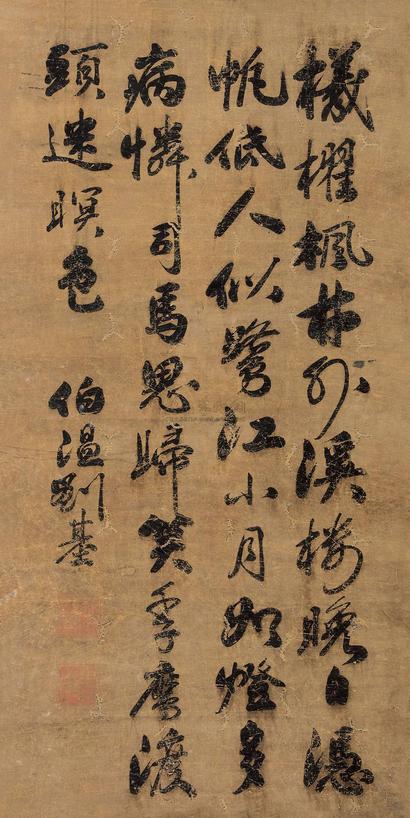 檥櫂楓林外溪樓晚自憑
帆低人似鷺江小月如燈多
病憐司馬思歸笑季鷹渡
頭迷暝色
伯溫劉基